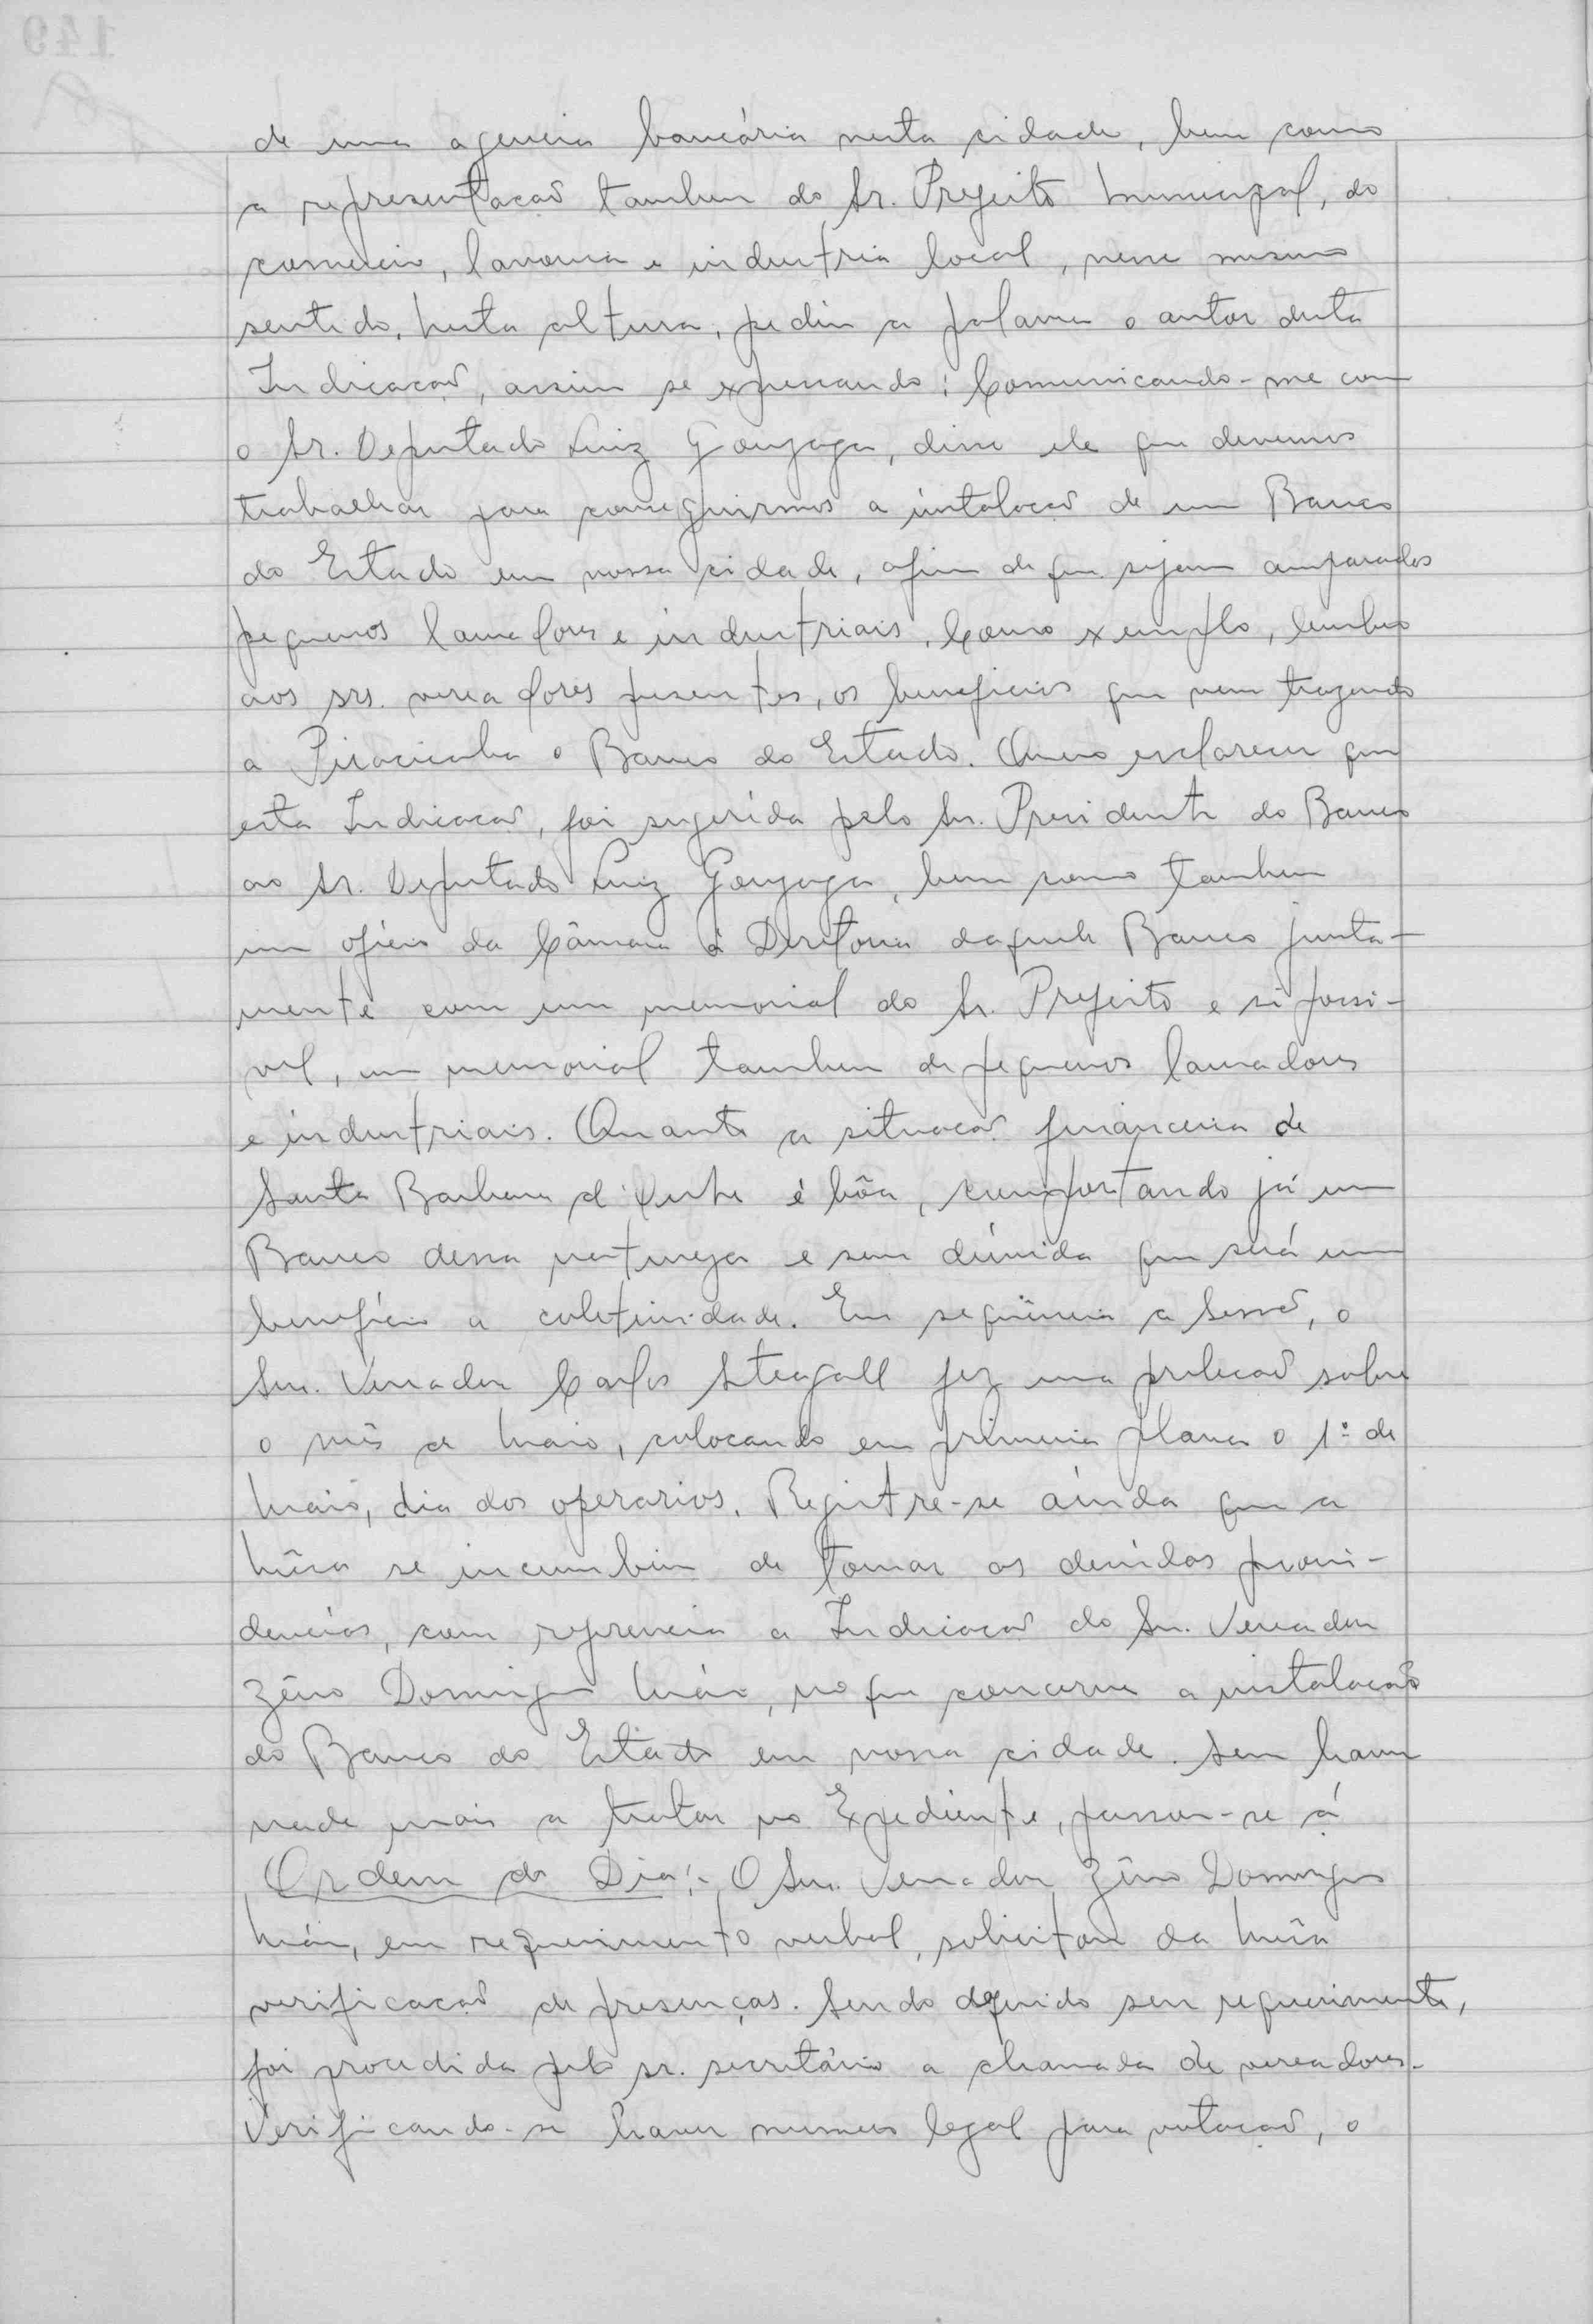 149
de uma agencia bancária nesta cidade, bem como
a representação tambem do Sr. Prefeito Municipal, do
comercio, lavoura e industria local, nesse mesmo
sentido. Nesta altura, pediu a palavra o autor desta
Indicação, assim se expressando: Comunicando-me com
o Sr. Deputado Luiz Gonzaga, disse ele que devemos
trabalhar para conseguirmos a instalação de um Banco
do Estado em nossa cidade, afim de que sejam amparados
pequenos lavradores e industriais. Como exemplo, lembro
aos srs. vereadores presentes, os beneficios que vem trazendo
a Piracicaba o Banco do Estado. Quero esclarecer que
esta Indicação, foi sugerida pelo Sr. Presidente do Banco
ao Sr. Deputado Luiz Gonzaga, bem como tambem
um ofício da Câmara à Diretoria daquele Banco junta-
mente com um memorial do Sr. Prefeito e si possi-
vel, um memorial tambem de pequenos lavradores
e industriais. Quanto a situação financeira de
Santa Barbara d'Oeste é bôa, comportando já um
Banco dessa natureza e sem dúvida que será um
benefício a coletividade. Em sequência a Sessão, o
Sr. Vereador Carlos Steagall fez uma preleção sobre
o mês de Maio, colocando em primeiro plano o 1º de
Maio, dia dos operarios. Registre-se ainda que a
Mêsa se incumbiu de tomar as devidas provi-
dencias, com referencia a Indicação do Sr. Vereador
Zêno Domingos Maia, no que concerne a instalação
do Banco do Estado em nossa cidade. Sem haver
nada mais a tratar no Expediente, passou-se á
Ordem do Dia:- O Sr. Vereador Zêno Domingos
Maia, em requerimento verbal, solicitou da Mêsa
verificação de presenças. Sendo deferido seu requerimento,
foi procedida pelo sr. secretário a chamada de vereadores.
Verificando-se haver numero legal para votação, o